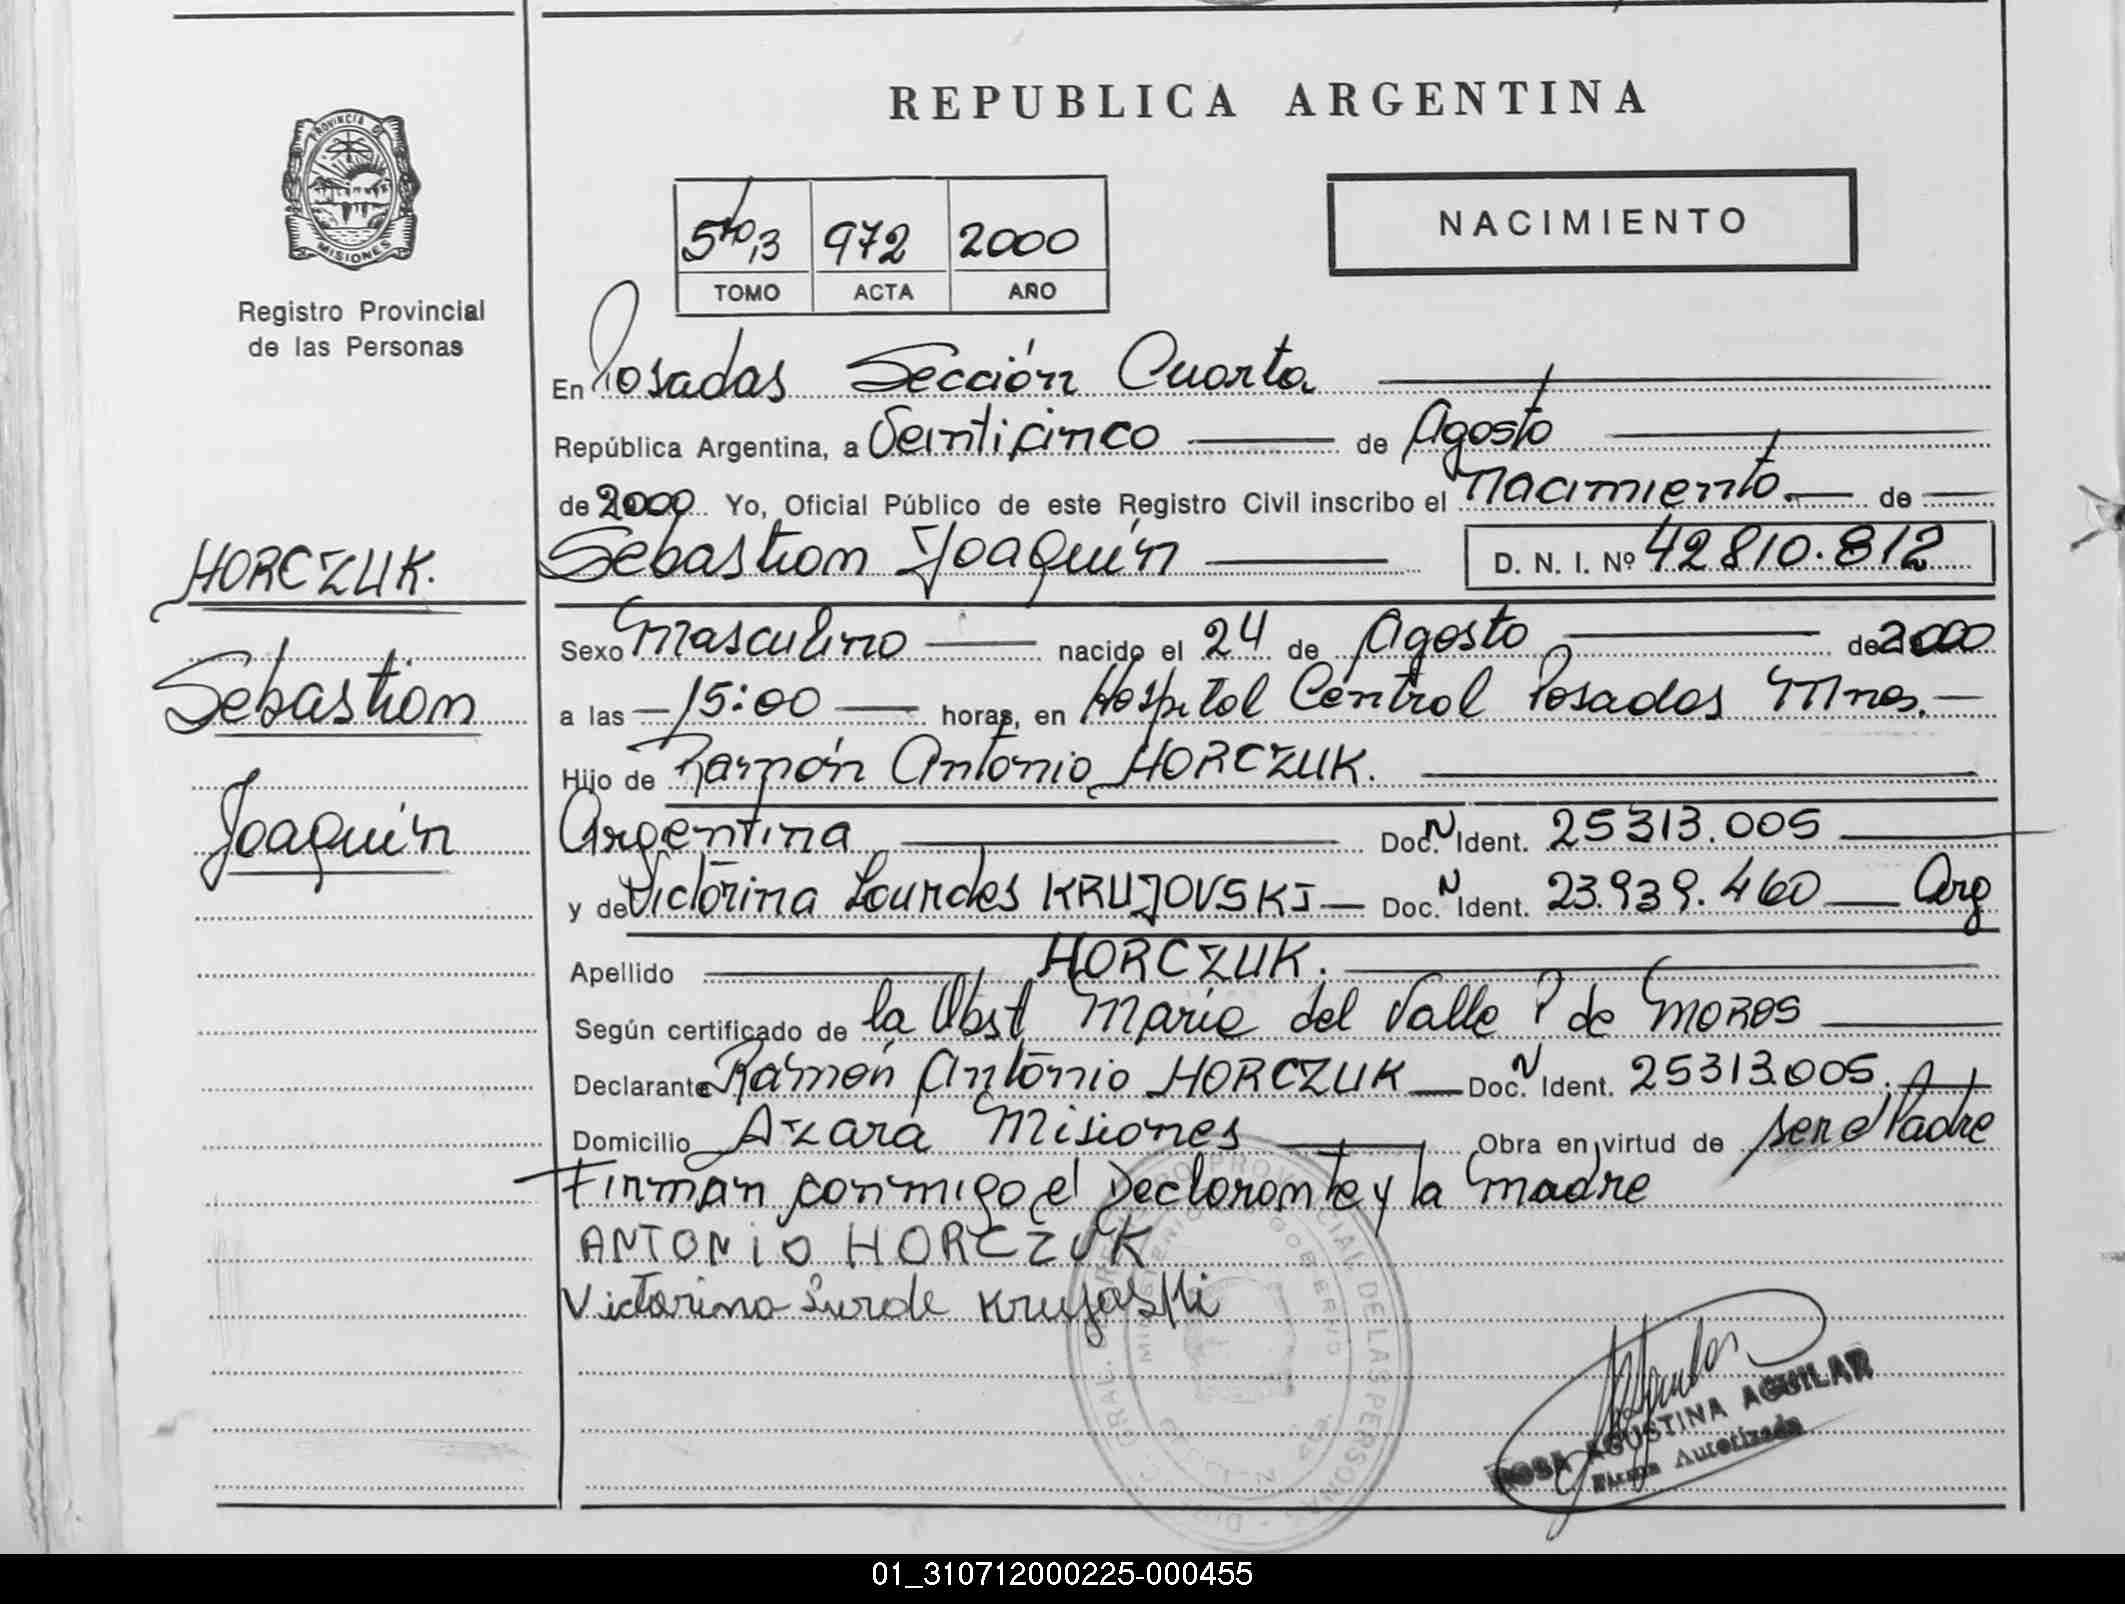 REPUBLICA ARGENTINA
PROVINCIA DE
MISIONES
Registro Provincial
de las Personas
5to,3 972 2000
TOMO ACTA AÑO
NACIMIENTO
En Posadas Sección Cuarta
República Argentina, a Veinticinco de Agosto
de 2000 Yo, Oficial Público de este Registro Civil inscribo el Nacimiento de
Sebastian Joaquín D. N. I. Nº 42810.812
HORCZUK.
Sebastian
Joaquín
Sexo Masculino nacido el 24 de Agosto de 2000
a las 15:00 horas, en Hospital Central Posadas Mnes.
Hijo de Ramón Antonio HORCZUK.
Argentina Doc. N Ident. 25313.005
y de Victorina Lourdes KRUJOVSKI Doc. N Ident. 23.939.460 Arg
Apellido HORCZUK.
Según certificado de la Obst María del Valle P de Moros
Declarante Ramón Antonio HORCZUK Doc. N Ident. 25313.005.
Domicilio Azara Misiones Obra en virtud de ser el Padre
Firman conmigo el Declarante y la madre
ANTONIO HORCZUK
Victorina Lurde Krujoski
ROSA AGUSTINA AGUILAR
Firma Autorizada
01_310712000225-000455